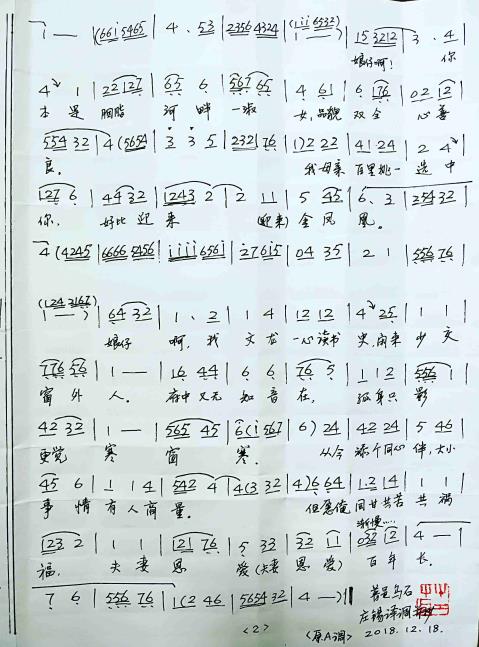 1 — — | (661 5465 | 4 . 53 | 2356 4324 | (1116532) 1 — — ) | 15 3212 | 3 . 4
娘仔啊! 你
4 1 | 22 127 | 65 6 | 567 65 | 4 61 | 6 76 | 02 12
本是 胭脂 河畔 一淑 女,品貌 双全 心善
554 32 | 4 (5654 | 3 3 5 | 232 176 | 1) 2 22 | 41 24 | 2 4
良。 我母亲 百里挑一 选中
127 6 | 44 32 | 1243 2 | 2 11 | 5 45 | 6 . 3 | 254 32
你, 好比 迎来 (迎来) 金凤 凰。
4 (4245 | 6666 5456 | 1111 6561 | 27 615 | 04 35 | 2 1 | 556 76
(124 3167) 1 — — ) | 64 32 | 1 . 2 | 1 4 | 12 12 | 4 25 | 1 1
娘仔 啊, 我 文龙 一心读书 闲来 少交
776 56 | 1 — — | 16 44 | 6 6 | 76 5 | 1 12 | 556 1
窗外 人。 府中又无 知音在, 孤身只影
42 32 | 1 — — | 565 45 | 6 (1 567 | 6) 24 | 42 24 | 5 46
更觉 寒 窗 寒。 从今 添个同心 伴,大小
45 6 | 1 14 | 542 4 | 4 (3 32 | 4) 6 64 | 12 14 | 1 1
事情 有人商量。 但愿俺 同甘共苦 共祸
渐慢……
123 2 | 1 1 | 121 76 | 5 33 | 32 11 | 032 12 | 4 — )
福, 夫妻 恩 爱 (夫妻 恩爱) 百年 长。
7 6 | 556 76 | 1 (2 46 | 5654 32 | 4 — ) ||
普邑乌石
庄锡泽调
<2> <原A调> 2018.12.18.